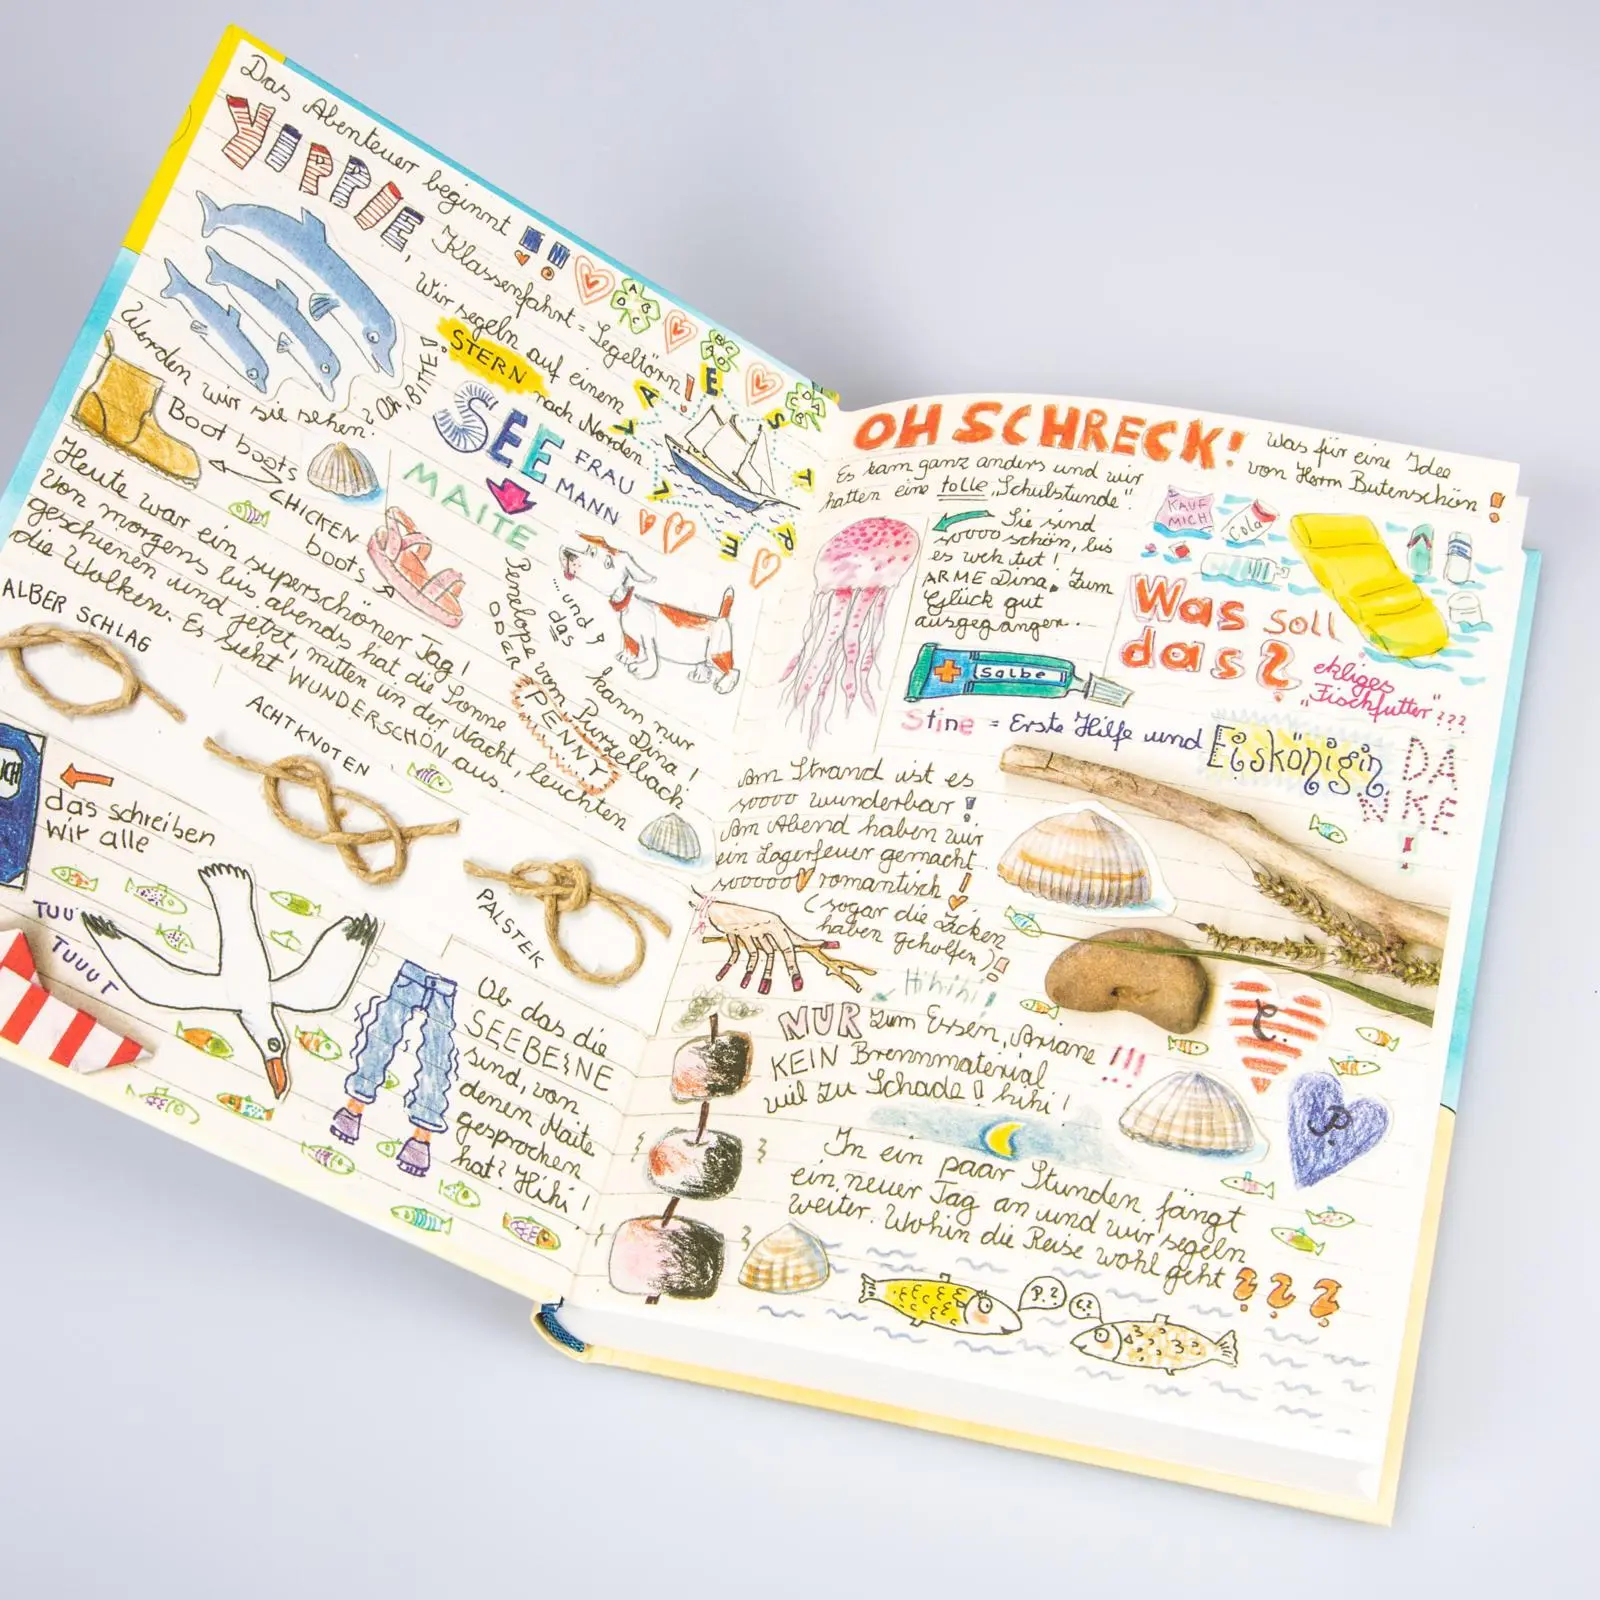 Das Abenteuer beginnt !!
YIPPIE, Klassenfahrt = Segeltörn!
Wir segeln auf einem
STERN nach Norden
VALESTRPE
Werden wir sie sehen? Oh, BITTE!
Boot boots
CHICKEN
boots
SEE FRAU
MANN
MAITE
...und
das
kann nur
Dina!
Penelope vom Purzelbach
ODER
PENNY
Heute war ein superschöner Tag!
Von morgens bis abends hat die Sonne
geschienen und jetzt, mitten in der Nacht, leuchten
die Wolken. Es sieht WUNDERSCHÖN aus.
ALBER SCHLAG
ACHTKNOTEN
PALSTEK
ICH
das schreiben
wir alle
TUU
TUUUT
Ob das die
SEEBEINE
sind, von
denen Maite
gesprochen
hat? Hihi!
OH SCHRECK! Was für eine Idee
von Herrn Butenschön!
Es kam ganz anders und wir
hatten eine tolle „Schulstunde“.
Sie sind
soooo schön, bis
es weh tut!
ARME Dina. Zum
Glück gut
ausgegangen.
KAUF
MICH!
Cola
Was soll
das?
ekliges
„Fischfutter“???
Salbe
Stine = Erste Hilfe und Eiskönigin
DA
NKE
!
Am Strand ist es
soooo wunderbar!
Am Abend haben wir
ein Lagerfeuer gemacht.
sooooo romantisch!
(sogar die Zicken
haben geholfen)!
Hihihi!
NUR zum Essen, Ariane!!!
KEIN Brennmaterial
viel zu Schade! hihi!
C.
P.
In ein paar Stunden fängt
ein neuer Tag an und wir segeln
weiter. Wohin die Reise wohl geht???
P.?
C.?